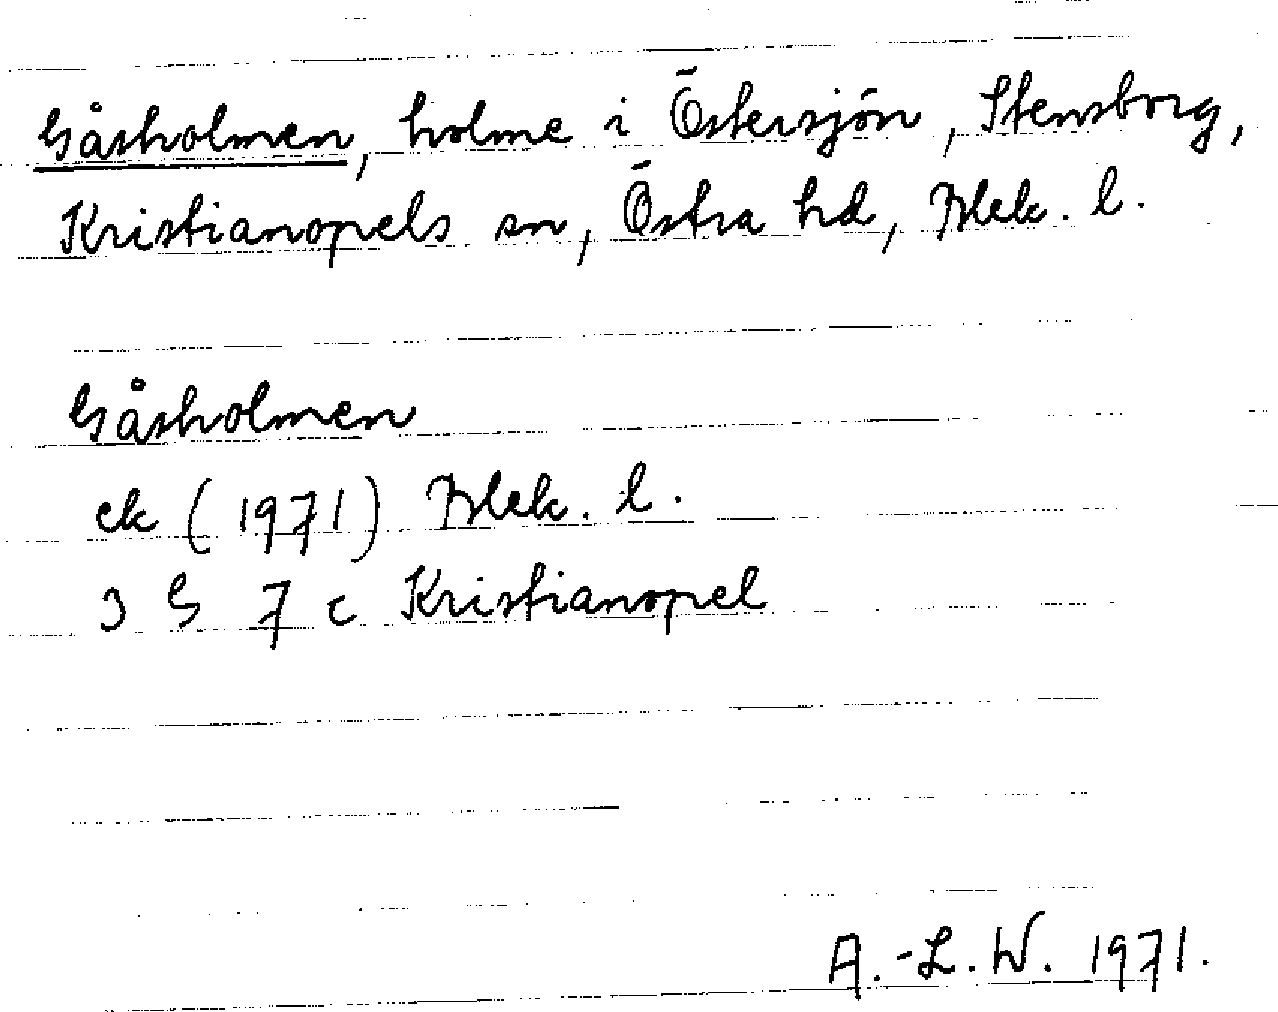 Gåsholmen, holme i Östersjön, Stensborg,
Kristianopels sn, Östra hd, Blek. l.
Gåsholmen
ek (1971) Blek. l.
3 G 7 c Kristianopel
A.-L. W. 1971.